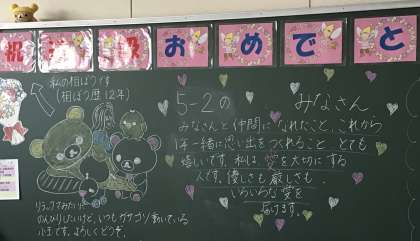 祝 級 おめでと
私の相ぼうです
(相ぼう歴12年)
5-2の みなさん
みなさんと仲間になれたこと、これから
1年一緒に思い出をつくれること とても
嬉しいです。私は、愛を大切にする
人です。優しさも 厳しさも
いろいろな愛を
届けます。
リラックマみたいに
のんびりしたいけど、いつもガサゴソ動いている
小王です。よろしくどうぞ。